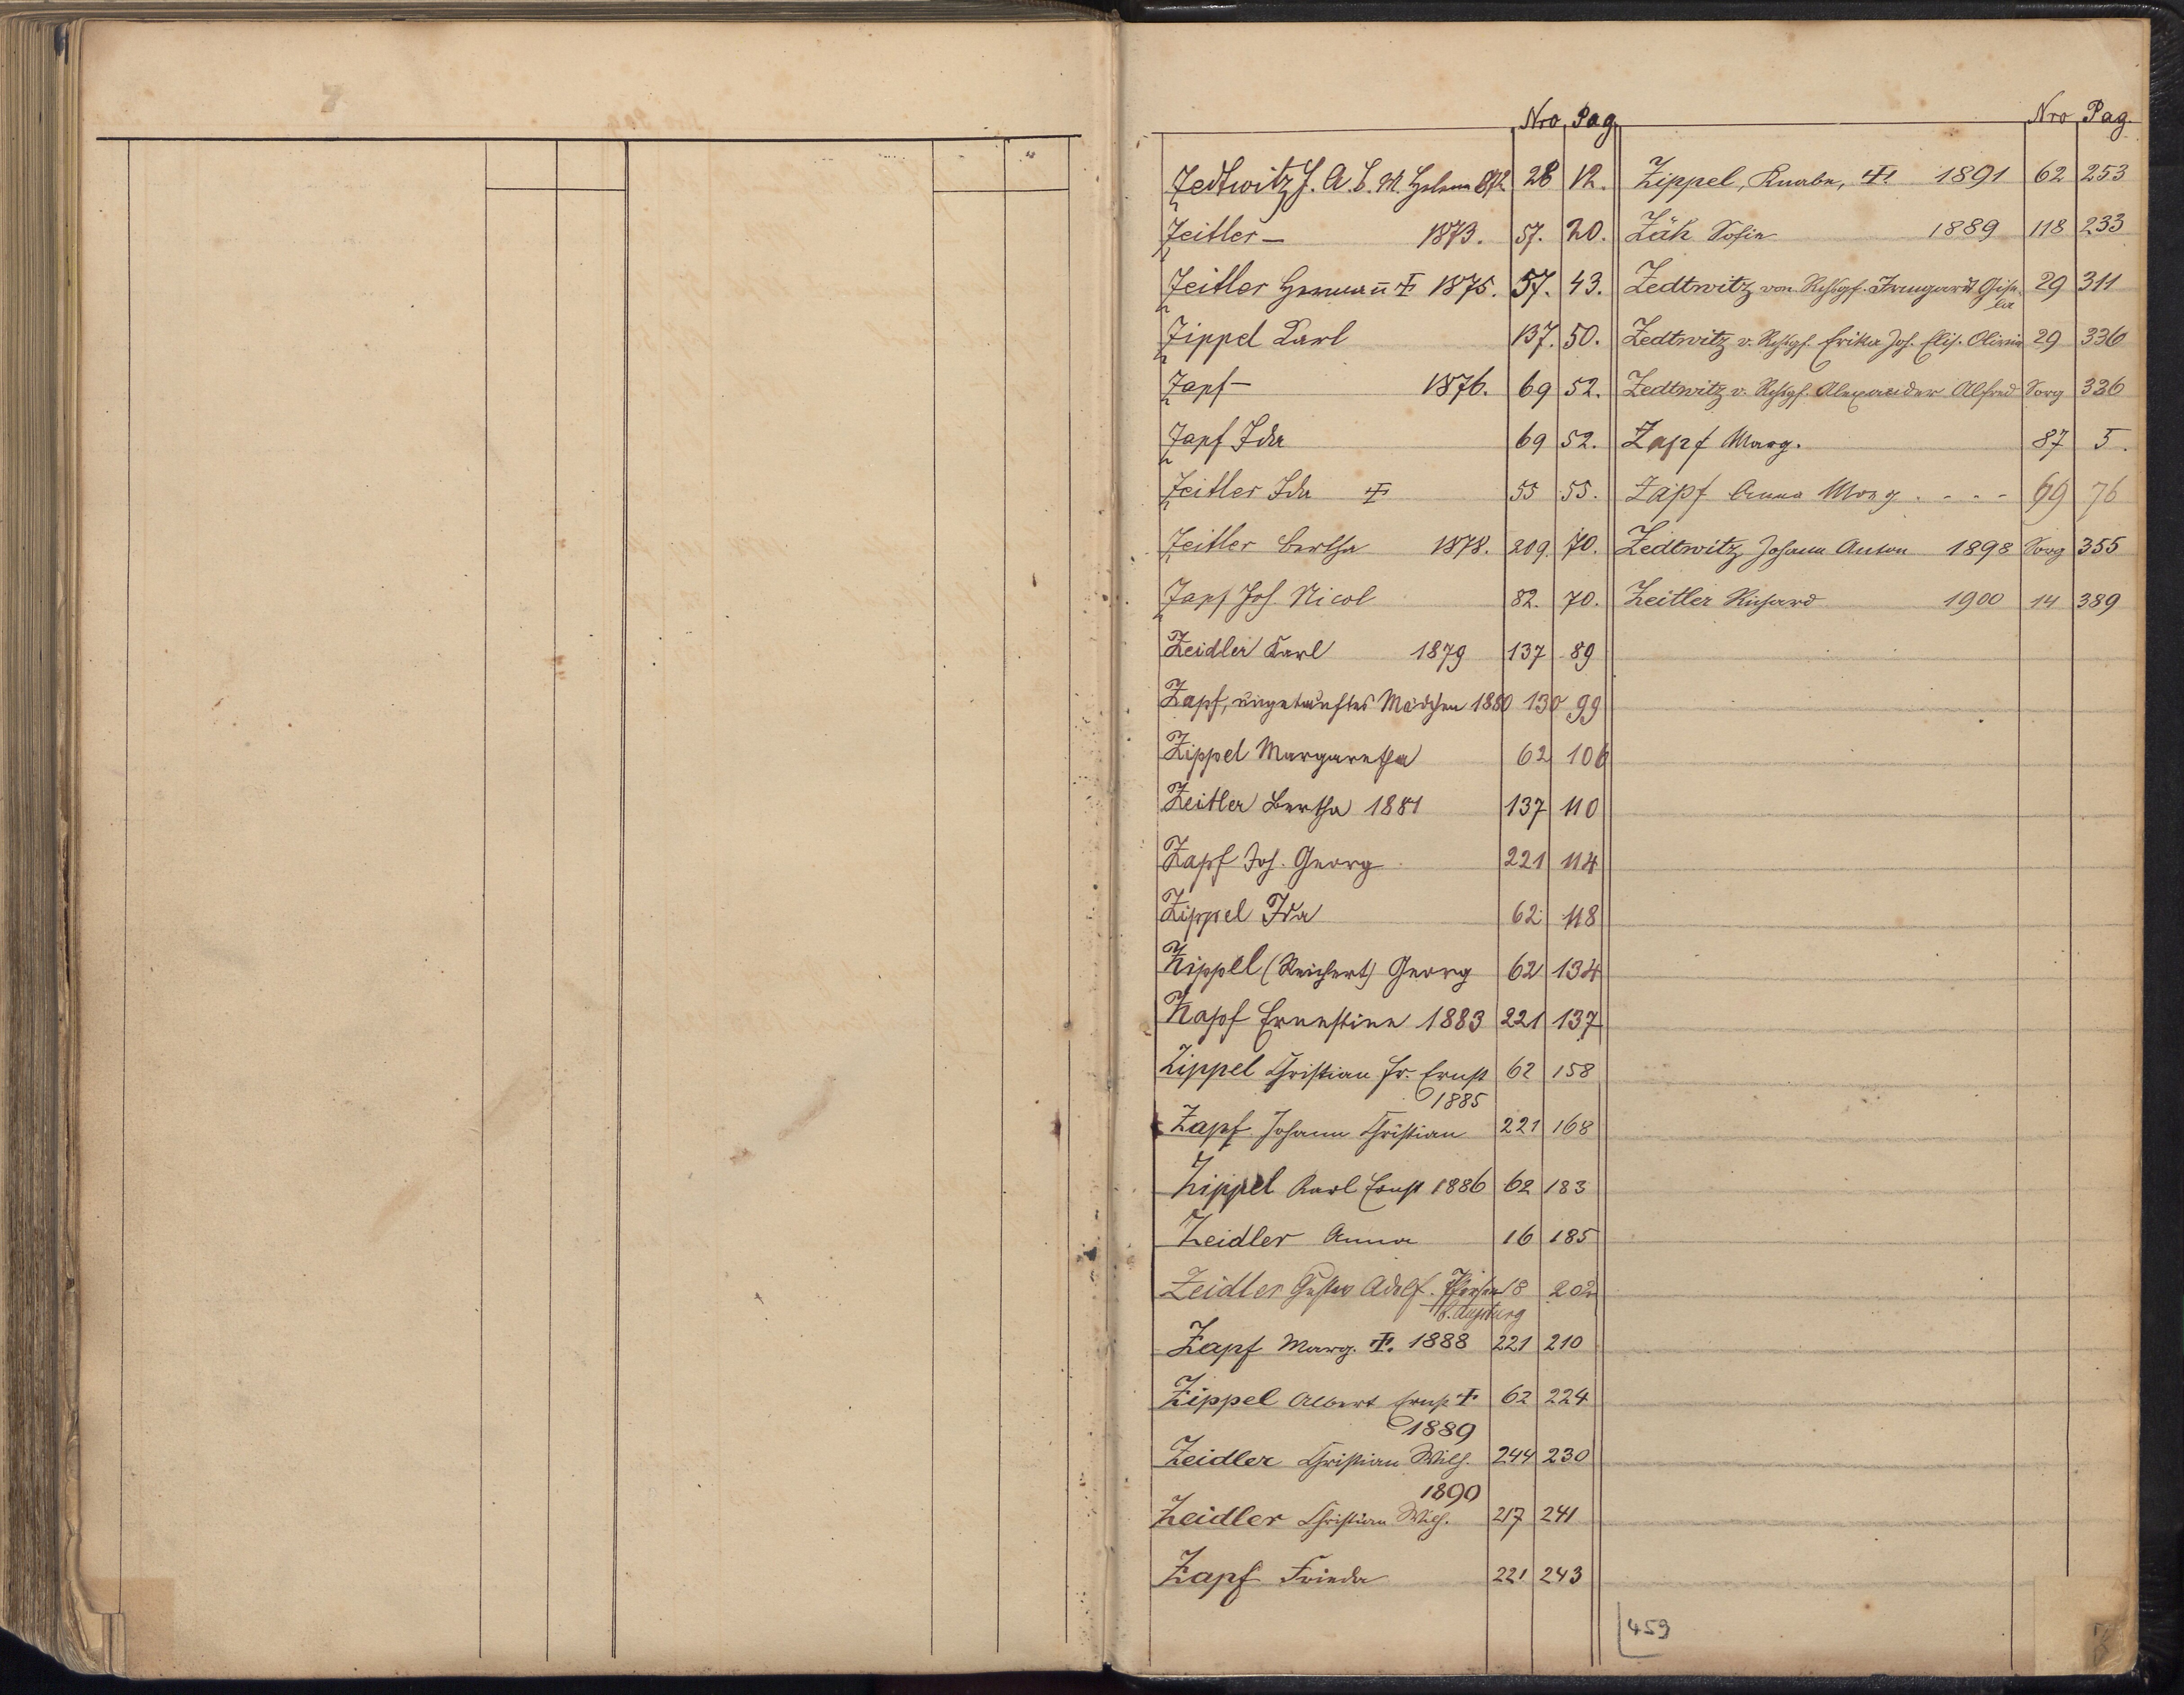 Nro Pag.
Zedtwitz J. A. L. M. Helena 1872 28 12.
Zeitler – 1873. 57. 20.
Zeitler Hermann ☩ 1875. 57. 43.
Zippel Karl 137. 50.
Zapf – 1876. 69 52.
Zapf Ida 69 52.
Zeitler Ida ☩ 55 55.
Zeitler Bertha 1878. 209. 70.
Zapf Joh. Nicol 82. 70.
Zeidler Karl 1879 137 89
Zapf, ungetauftes Mädchen 1880 130 99
Zippel Margaretha 62 106
Zeitler Bertha 1881 137 110
Zapf Joh. Georg 221 114
Zippel Ida 62 118
Zippel (Reichert) Georg 62 134
Zapf Ernestine 1883 221 137
Zippel Christian Fr. Ernst 62 158
1885
Zapf Johann Christian 221 168
Zippel Karl Ernst 1886 62 183
Zeidler Anna 16 185
Zeidler Gustav Adolf. Pfersee 18 202
b. Augsburg
Zapf Marg. ☩. 1888 221 210
Zippel Albert Ernst ☩ 62 224
1889
Zeidler Christian Wilh. 244 230
1890
Zeidler Christian Wilh. 217 241
Zapf Frieda 221 243
Nro Pag.
Zippel, Knabe, ☩. 1891 62 253
Zäh Sofie 1889 118 233
Zedtwitz von Rchsgf. Irmgard Gise- 29 311
la
Zedtwitz v. Rchsgf. Erika Joh. Elis. Olivia 29 336
Zedtwitz v. Rchsgf. Alexander Alfred Sorg 326
Zapf Marg. 87 5.
Zapf Anna Marg. - - - 69 76
Zedtwitz Johann Anton 1898 Sorg 355
Zeitler Richard 1900 14 389
459